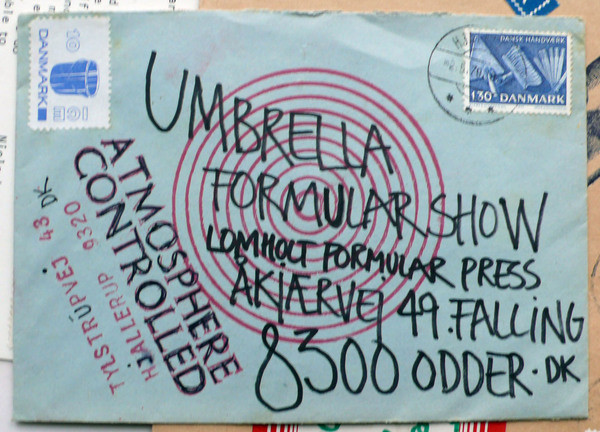 10
DANMARK
IGE
DANSK HÅNDVÆRK
130 DANMARK
UMBRELLA
FORMULAR SHOW
LOMHOLT FORMULAR PRESS
ÅKJÆRVEJ 49. FALLING
8300 ODDER. DK
ATMOSPHERE
CONTROLLED
TYLSTRUPVEJ 43 DK-
HJALLERUP 9320